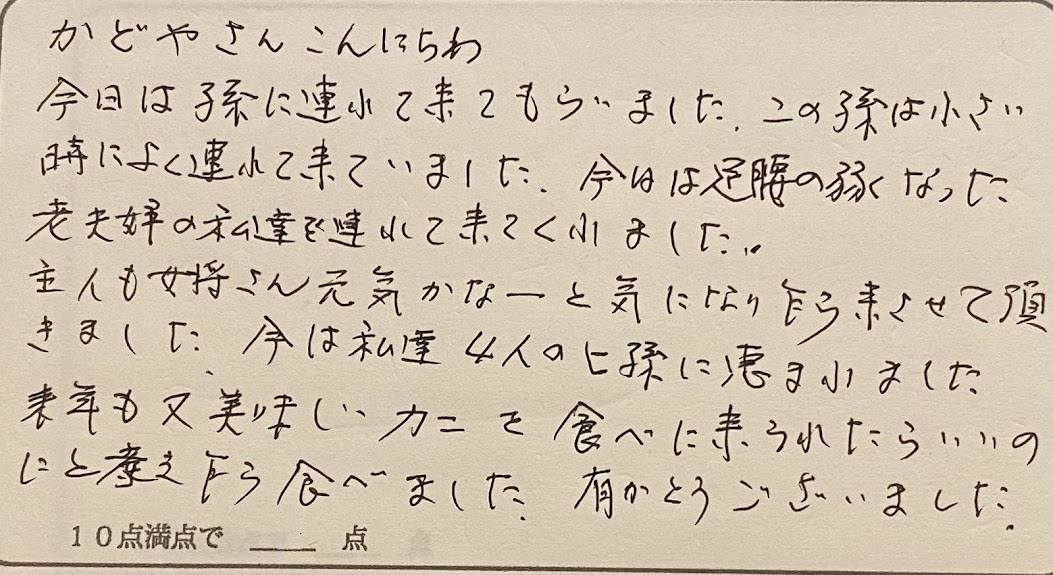 かどやさんこんにちわ
今日は孫に連れて来てもらいました。この孫は小さい
時によく連れて来ていました。今は足腰の弱くなった
老夫婦の私達を連れて来てくれました。
主人も女将さん元気かなーと気になり乍ら来させて頂
きました。今は私達4人のヒ孫に恵まれました
来年も又美味しいカニを食べに来られたらいいの
にと考え乍ら食べました。有がとうございました。
10点満点で ___ 点